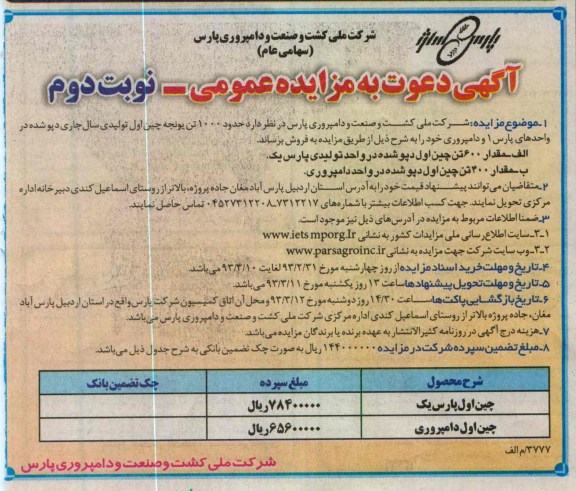 پارس
شرکت ملی کشت و صنعت و دامپروری پارس
(سهامی عام)
آگهی دعوت به مزایده عمومی ـ نوبت دوم
۱ـ موضوع مزایده: شرکت ملی کشت و صنعت و دامپروری پارس در نظر دارد حدود ۱۰۰۰ تن یونجه چین اول تولیدی سال جاری دپو شده در
واحدهای پارس ۱ و دامپروری خود را به شرح ذیل از طریق مزایده به فروش برساند.
الف ـ مقدار ۶۰۰ تن چین اول دپو شده در واحد تولیدی پارس یک.
ب ـ مقدار ۴۰۰ تن چین اول دپو شده در واحد دامپروری.
۲ـ متقاضیان می‌توانند پیشنهاد قیمت خود را به آدرس استان اردبیل پارس آباد مغان جاده پروژه، بالاتر از روستای اسماعیل کندی دبیرخانه اداره
مرکزی تحویل نمایند. جهت کسب اطلاعات بیشتر با شماره‌های ۷۳۱۲۲۱۷ـ۰۴۵۲۷۳۱۲۲۰۸ تماس حاصل نمایند.
۳ـ ضمنا اطلاعات مربوط به مزایده در آدرس‌های ذیل نیز موجود است.
۳ـ۱ـ سایت اطلاع رسانی ملی مزایدات کشور به نشانی www.ietsmporg.Ir
۳ـ۲ـ وب سایت شرکت جهت مزایده به نشانی www.parsagroinc.ir
۴ـ تاریخ و مهلت خرید اسناد مزایده از روز چهارشنبه مورخ ۹۳/۲/۳۱ لغایت ۹۳/۳/۱۰ می‌باشد.
۵ـ تاریخ و مهلت تحویل پیشنهادها ساعت ۱۳ روز یکشنبه مورخ ۹۳/۳/۱۱ می‌باشد.
۶ـ تاریخ بازگشایی پاکت‌ها ساعت ۱۴/۳۰ روز دوشنبه مورخ ۹۳/۳/۱۲ و محل آن اتاق کمیسیون شرکت پارس واقع در استان اردبیل پارس آباد
مغان، جاده پروژه بالاتر از روستای اسماعیل کندی اداره مرکزی شرکت ملی کشت و صنعت و دامپروری پارس می‌باشد.
۷ـ هزینه درج آگهی در روزنامه کثیرالانتشار به عهده برنده یا برندگان مزایده می‌باشد.
۸ـ مبلغ تضمین سپرده شرکت در مزایده ۱۴۴۰۰۰۰۰۰ ریال به صورت چک تضمین بانکی به شرح جدول ذیل می‌باشد.
شرح محصول مبلغ سپرده چک تضمین بانک
چین اول پارس یک ۷۸۴۰۰۰۰۰ ریال
چین اول دامپروری ۶۵۶۰۰۰۰۰ ریال
۳۷۷۷/م الف
شرکت ملی کشت و صنعت و دامپروری پارس